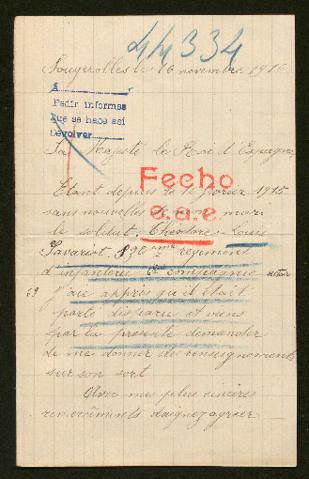 44334
Fougerolles le 16 novembre 1916
A
Pedir informes
que se hace así
Devolver
Sa Majesté le Roi d'Espagne,
Fecho
e.a.e.
Etant depuis le 16 février 1915
sans nouvelles de mon mari
le soldat Théodore-Louis
Savariot 230ème régiment
d'infanterie compagnie
69
j'ai appris qu'il était
porté disparu et viens
par la présente demander
de me donner des renseignements
sur son sort
Avec mes plus sincères
remerciements daignez agréer